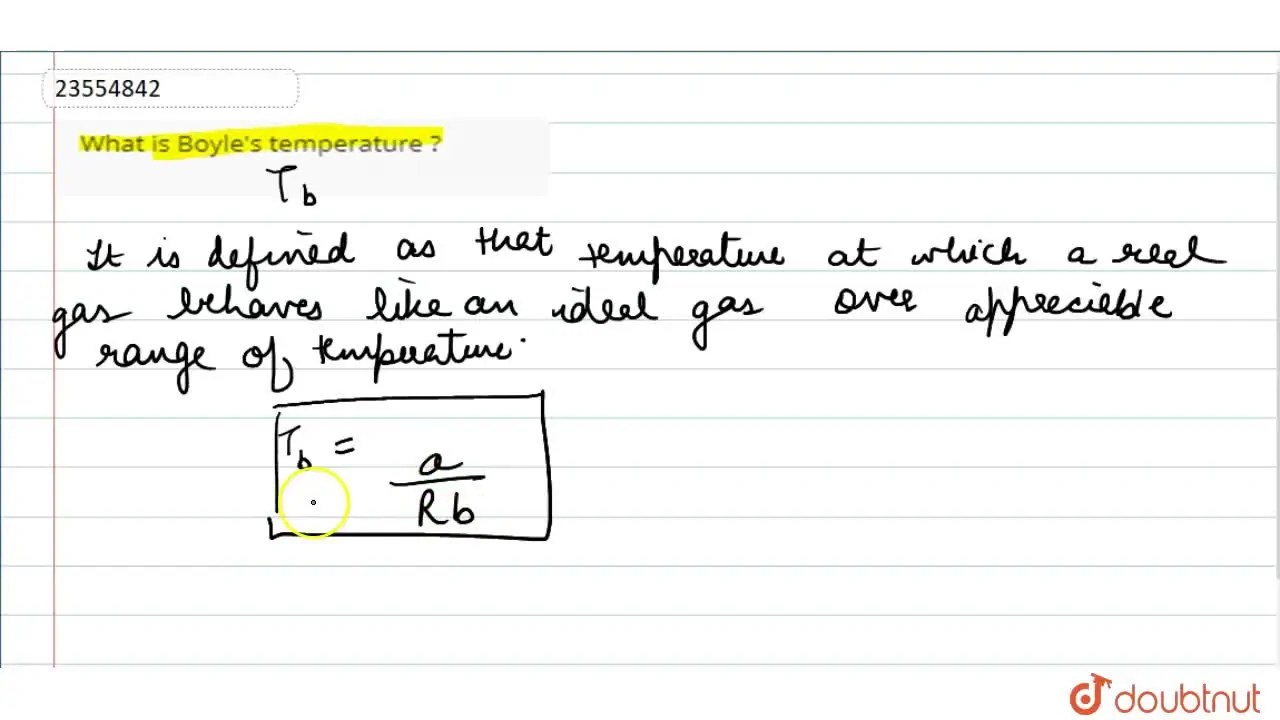 23554842
What is Boyle's temperature ?
T_b
It is defined as that temperature at which a real
gas behaves like an ideal gas over appreciable
range of temperature.
T_b = a / Rb
doubtnut